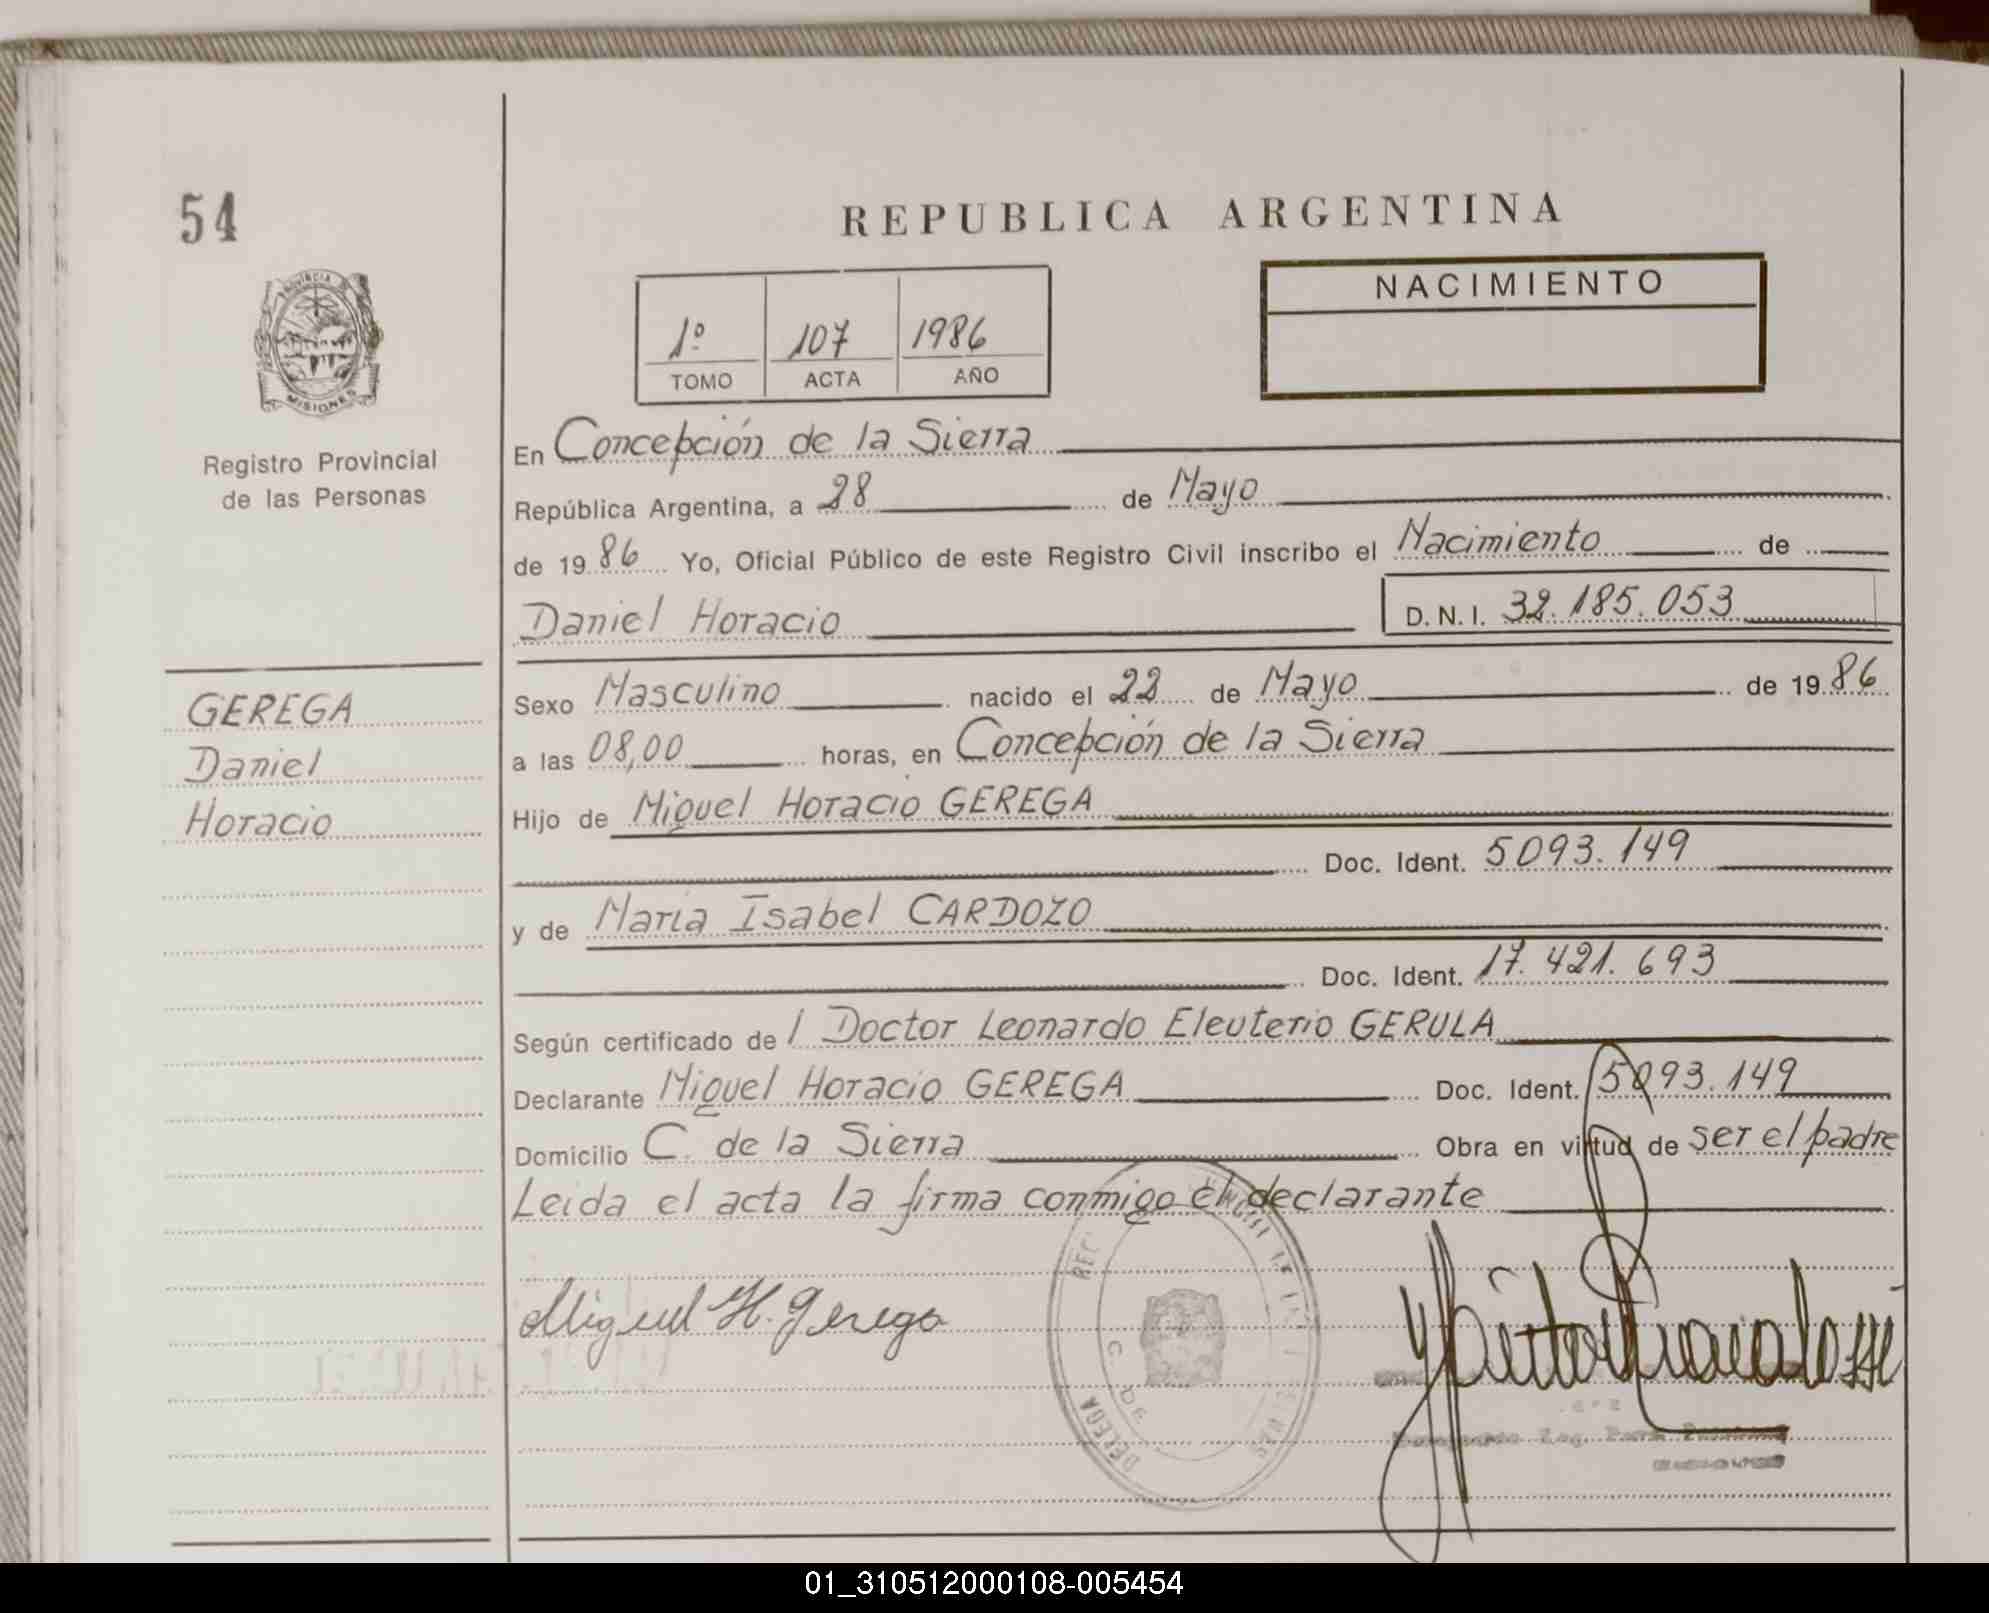 54
REPUBLICA ARGENTINA
PROVINCIA
MISIONES
NACIMIENTO
1º 107 1986
TOMO ACTA AÑO
Registro Provincial
de las Personas
En Concepción de la Sierra
República Argentina, a 28 de Mayo
de 19 86 Yo, Oficial Público de este Registro Civil inscribo el Nacimiento de
Daniel Horacio D.N.I. 32.185.053
GEREGA
Daniel
Horacio
Sexo Masculino nacido el 22 de Mayo de 19 86
a las 08,00 horas, en Concepción de la Sierra
Hijo de Miguel Horacio GEREGA
Doc. Ident. 5093.149
y de María Isabel CARDOZO
Doc. Ident. 17.421.693
Según certificado de l Doctor Leonardo Eleuterio GERULA
Declarante Miguel Horacio GEREGA Doc. Ident. 5093.149
Domicilio C. de la Sierra Obra en virtud de ser el padre
Leida el acta la firma conmigo el declarante
Miguel H. Gerega
01_310512000108-005454